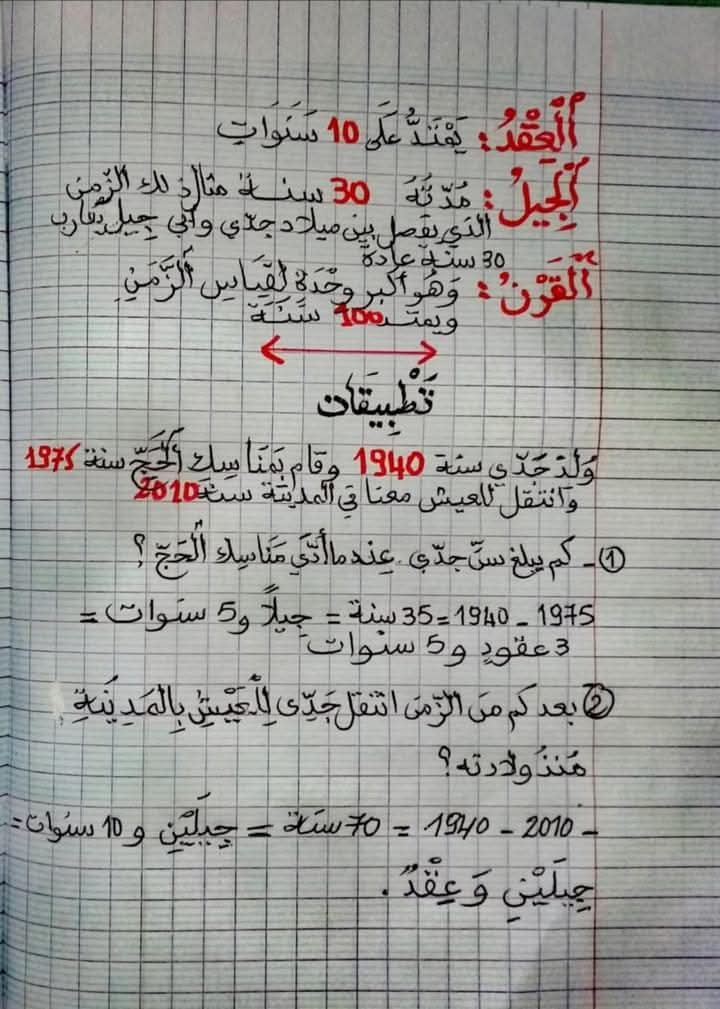 اَلْعِقْدُ: يَمْتَدُّ عَلَى 10 سَنَوَاتٍ
اَلْجِيلُ: مُدَّتُهُ 30 سنة مثال ذلك الزّمن
الذي يفصل بين ميلاد جدّي وأبي جيل يُقارب
30 سنة عادة
اَلْقَرْنُ: وَهُوَ أكبر وِحْدَة لِقِيَاسِ اَلزَّمَنِ
ويمتد 100 سَنَة
تَطْبِيقَات
وُلِدَ جَدِّي سنة 1940 وقام بِمَنَاسِك اَلْحَجِّ سنة 1975
وانتقل للعيش معنا في المدينة سنة 2010
1- كم يبلغ سنّ جدّي عندما أدَّى مَنَاسِك اَلْحَجّ؟
1975 - 1940 = 35 سنة = جِيلاً و 5 سنوات =
3 عقودٍ و 5 سنوات
2 بعد كم من الزّمن انتقل جَدِّى لِلْعَيْشِ بِالمَدِينَةِ
مُنذُ ولادته؟
- 2010 - 1940 = 70 سنة = جِيلَيْنِ و 10 سنوات =
جِيلَيْنِ وَعِقْدٌ.